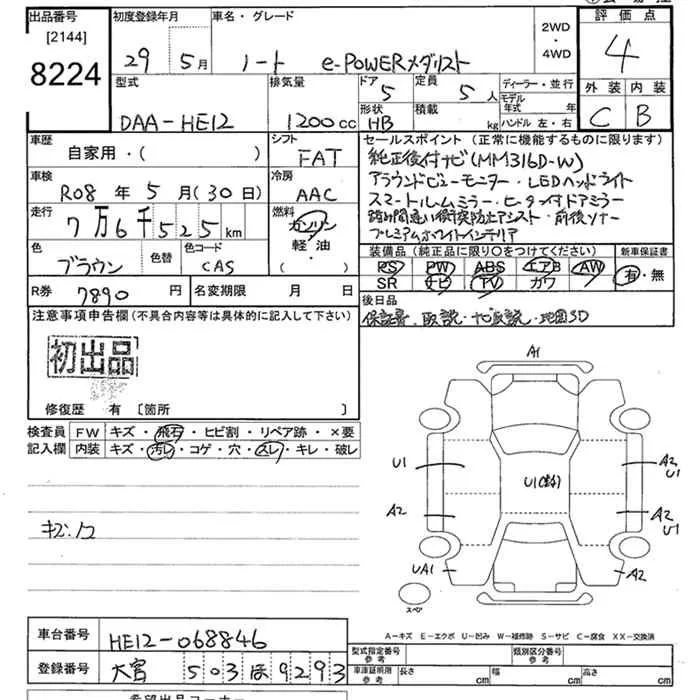 出品番号
[2144]
8224
初度登録年月
29 5月
車名・グレード
ノート e-POWERメダリスト
2WD
・
4WD
評価点
4
外装 内装
C B
型式
DAA-HE12
排気量
1200cc
ドア
5
定員
5人
形状
HB
積載
kg
ディーラー・並行
モデル年式 年
ハンドル 左・右
車歴
自家用・( )
シフト
FAT
車検
R08年5月(30日)
冷房
AAC
走行
7万6千525km
燃料
ガソリン
軽・油
・( )
色
ブラウン
色替
色コード
CAS
R券
7890円
名変期限 月 日
セールスポイント(正常に機能するものに限ります)
純正後付ナビ(MM316D-W)
アラウンドビューモニター・LEDヘッドライト
スマートルームミラー・ヒーター付ドアミラー
踏み間違い衝突防止アシスト・前後ソナー
プレミアムホワイトインテリア
装備品(純正品に限り○をつけてください)
新車保証書
PS PW ABS エアB AW
SR ナビ TV カワ
有・無
後日品
保証書、取説・ナビ取説・地図SD
注意事項申告欄(不具合内容等は具体的に記入して下さい)
初出品
修復歴 有 [箇所 ]
検査員
記入欄
FW キズ・飛石・ヒビ割・リペア跡・×要
内装 キズ・汚レ・コゲ・穴・スレ・キレ・破レ
A1
U1
A2
U1
A2
A2
U1
UA1
A2
スペア
A-キズ E-エクボ U-凹み W-補修跡 S-サビ C-腐食 XX-交換済
車台番号
HE12-068846
登録番号
大宮 503 ほ 9293
型式指定番号
参考
類別区分番号
参考
車庫証明用
参考
長さ cm
幅 cm
高さ cm
希望出品コーナー